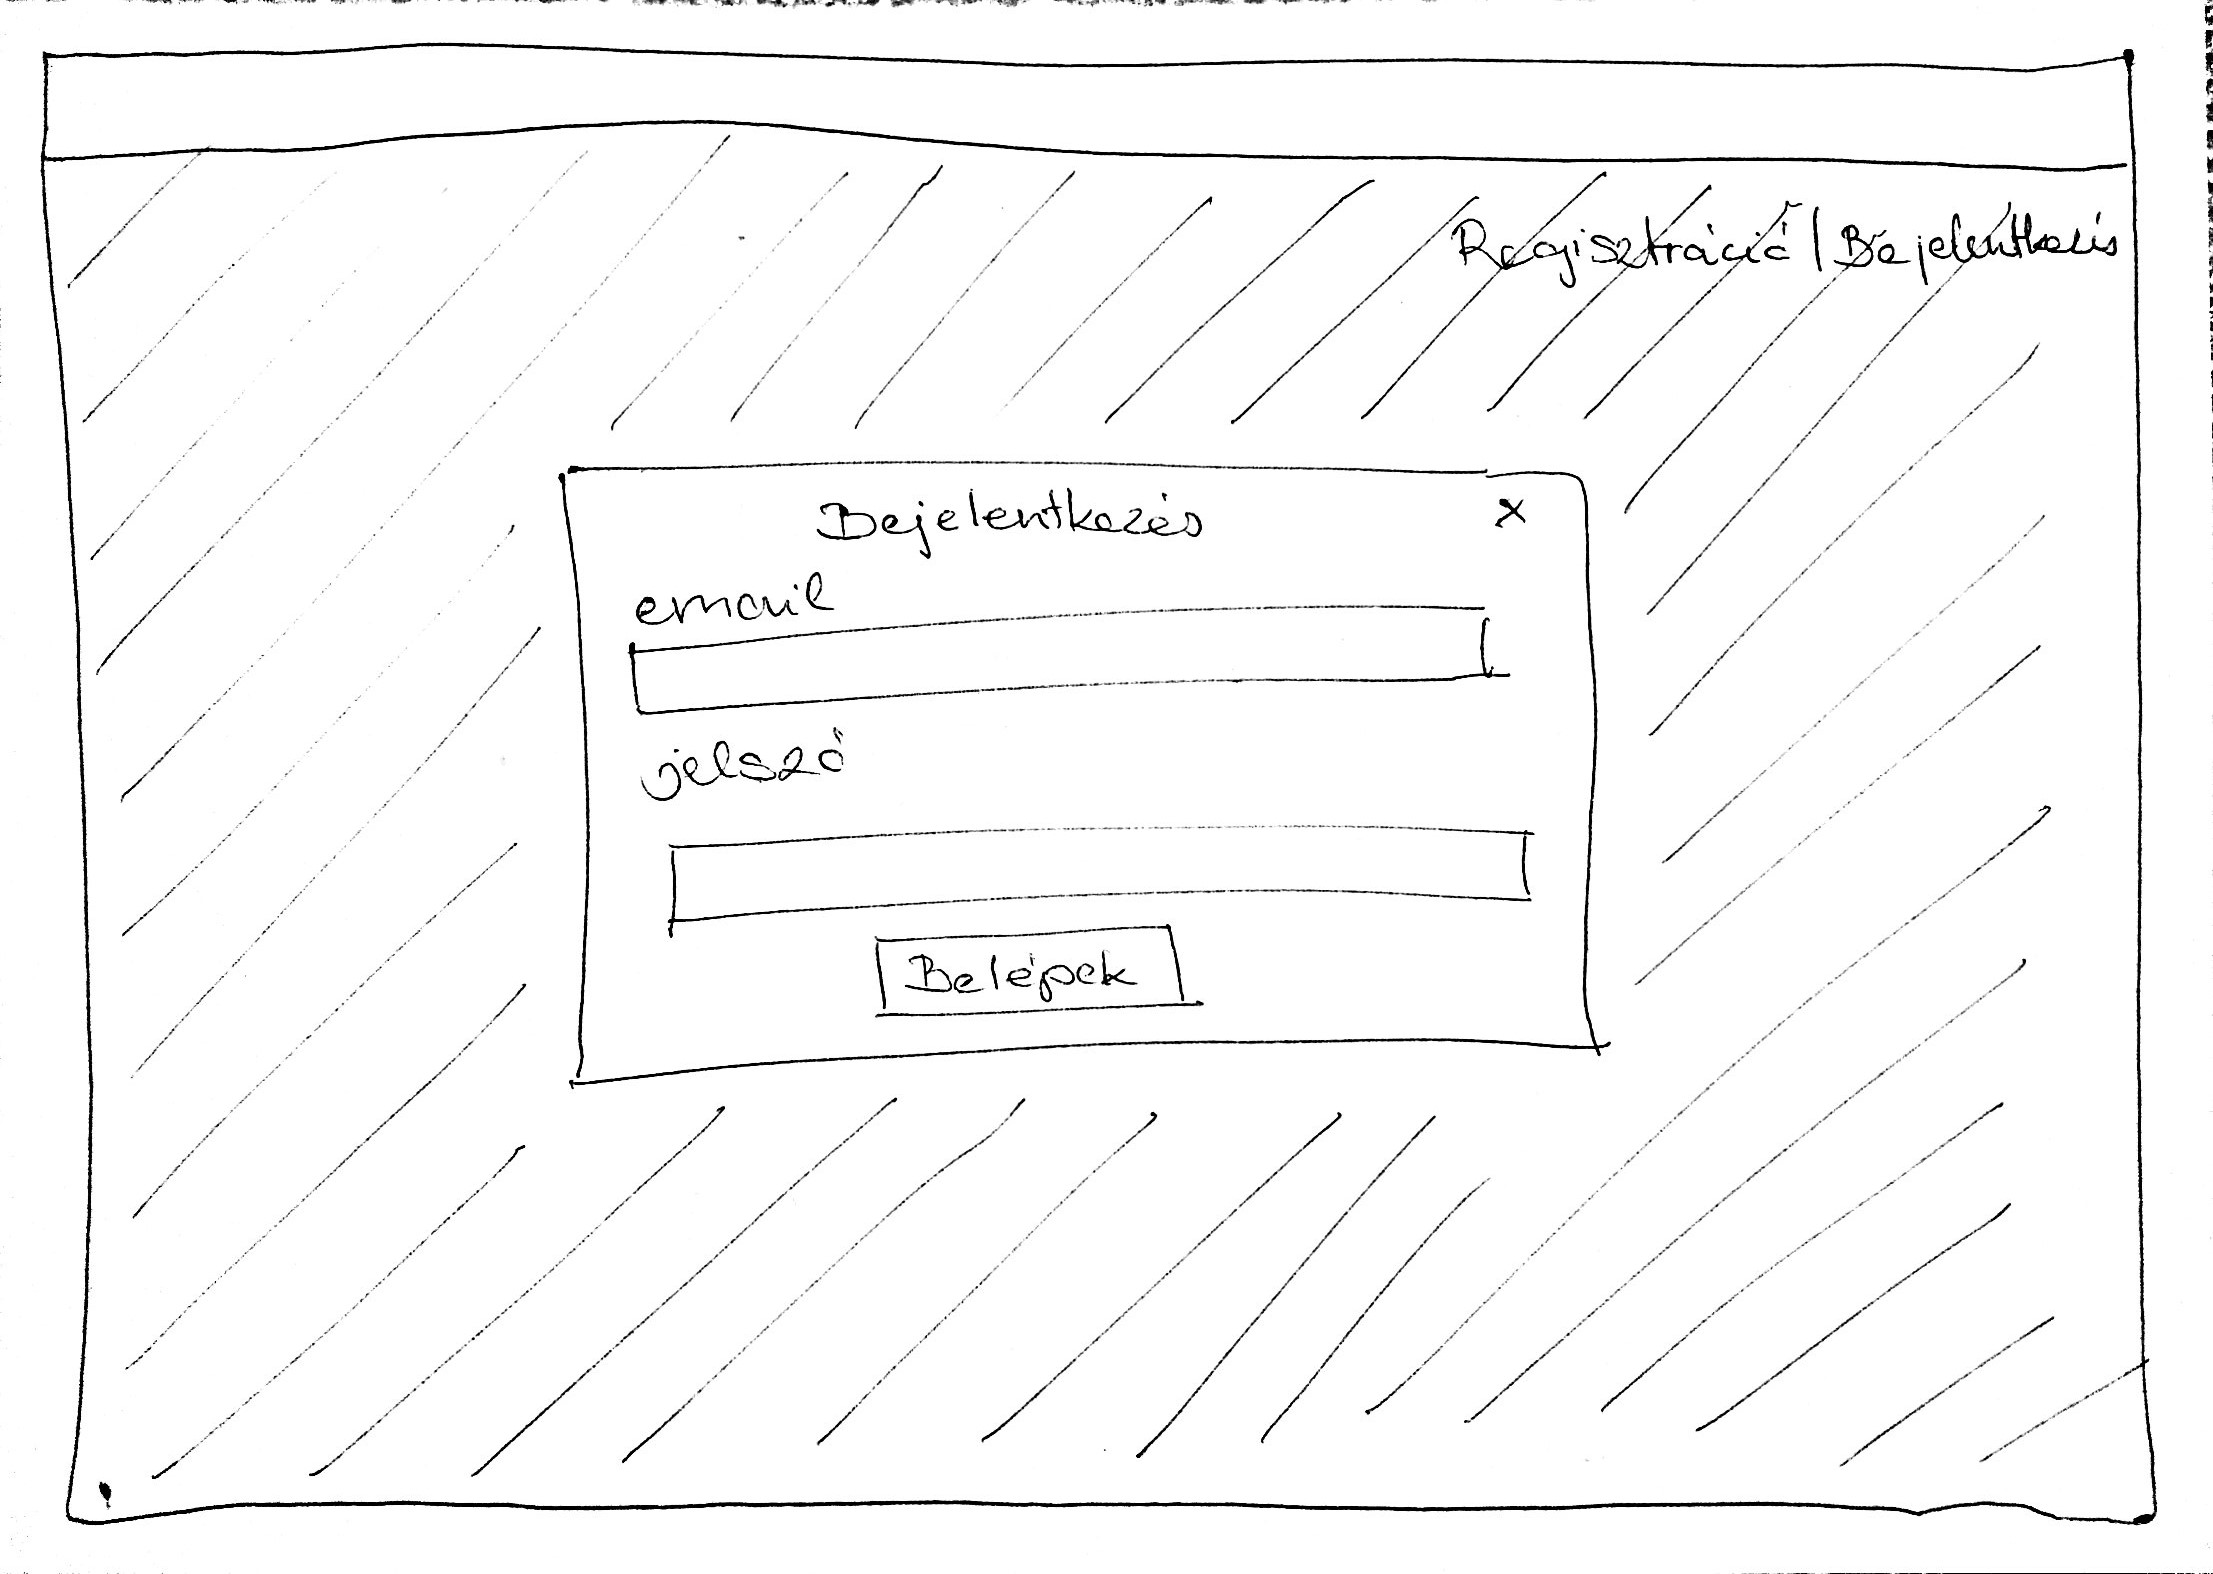 Regisztráció | Bejelentkezés
Bejelentkezés x
email
jelszó
Belépek